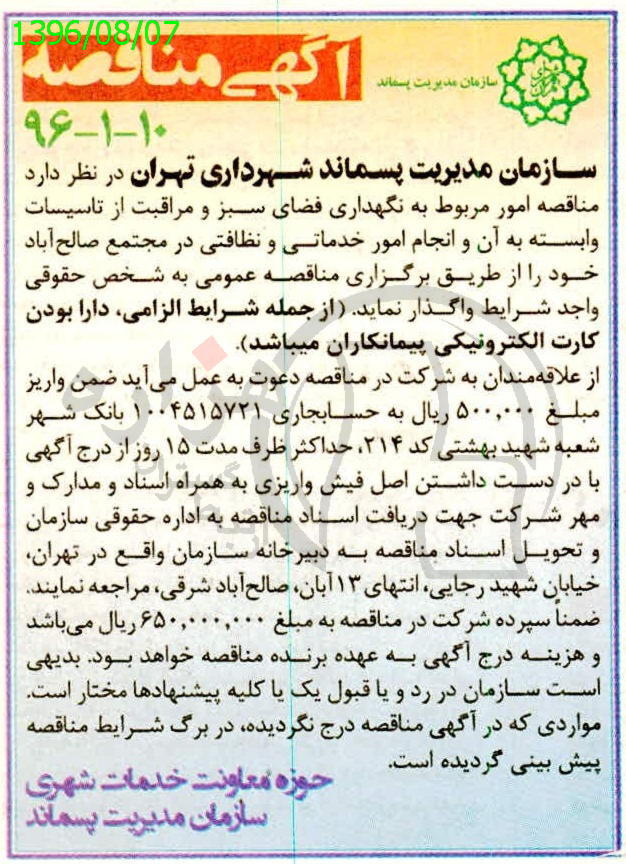 1396/08/07
آگهی مناقصه
سازمان مدیریت پسماند
۹۶-۱-۱۰
سـازمان مدیریت پسـماند شـهرداری تهران در نظر دارد
مناقصه امور مربوط به نگهداری فضای سـبز و مراقبت از تاسیسات
وابسـته به آن و انجام امور خدماتـی و نظافتی در مجتمع صالح‌آباد
خـود را از طریـق برگـزاری مناقصـه عمومی به شـخص حقوقی
واجد شـرایط واگـذار نماید. (از جمله شـرایط الزامی، دارا بودن
کارت الکترونیکی پیمانکاران میباشد).
از علاقه‌مندان به شرکت در مناقصه دعوت به عمل می‌آید ضمن واریز
مبلـغ ۵۰۰,۰۰۰ ریال به حسـابجاری ۱۰۰۴۵۱۵۷۲۱ بانک شـهر
شعبه شهید بهشتی کد ۲۱۴، حداکثر ظرف مدت ۱۵ روز از درج آگهی
با در دسـت داشـتن اصل فیش واریزی به همراه اسناد و مدارک و
مهر شـرکت جهت دریافت اسـناد مناقصه به اداره حقوقی سازمان
و تحویـل اسـناد مناقصه بـه دبیرخانه سـازمان واقـع در تهران،
خیابان شهید رجایی، انتهای ۱۳آبان، صالح‌آباد شرقی، مراجعه نمایند.
ضمناً سپرده شرکت در مناقصه به مبلغ ۶۵۰,۰۰۰,۰۰۰ ریال می‌باشد
و هزینـه درج آگهی بـه عهده برنـده مناقصه خواهد بـود. بدیهی
اسـت سـازمان در رد و یا قبول یک یا کلیه پیشنهادها مختار است.
مواردی که در آگهی مناقصه درج نگردیده، در برگ شـرایط مناقصه
پیش بینی گردیده است.
حوزه معاونت خدمات شهری
سازمان مدیریت پسماند
هزاره